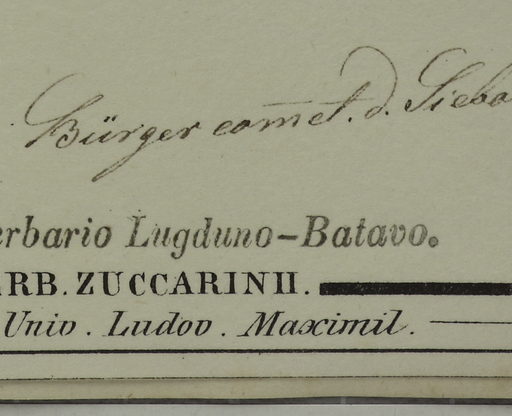 Bürger com̄et. d. Siebo
erbario Lugduno-Batavo.
RB. ZUCCARINII.
Univ. Ludov. Maximil.